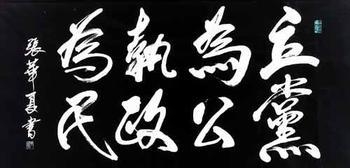 立黨
為公
執政
為民
張華夏書